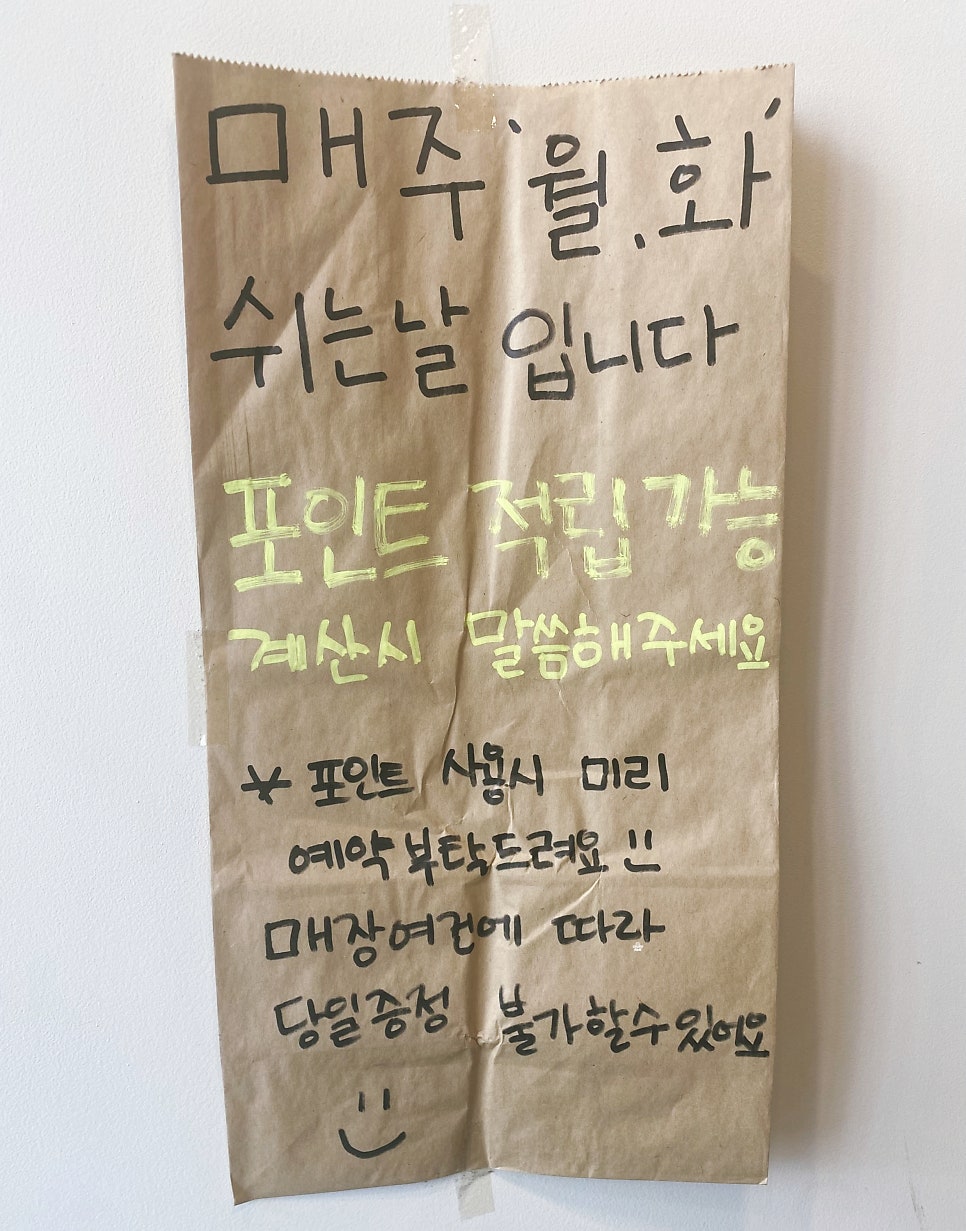 매주 '월.화'
쉬는날 입니다
포인트 적립가능
계산시 말씀해주세요
* 포인트 사용시 미리
예약부탁드려요 !!
매장여건에 따라
당일증정 불가할수있어요